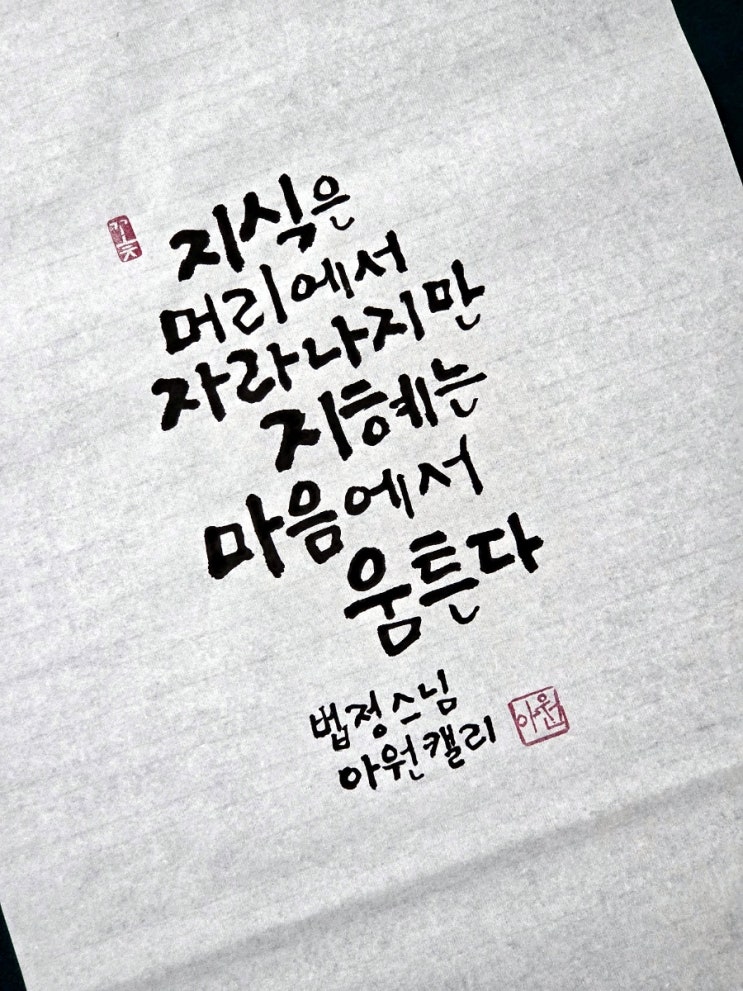 지식은
머리에서
자라나지만
지혜는
마음에서
움튼다
법정스님
아원캘리
아원